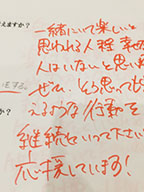 えますか？
一緒にいて楽しいと
思われる人程 幸せな
人はいないと思いま
ぜひ、そう思っても
えるような行動を
か？
継続していって下さい
応援しています！